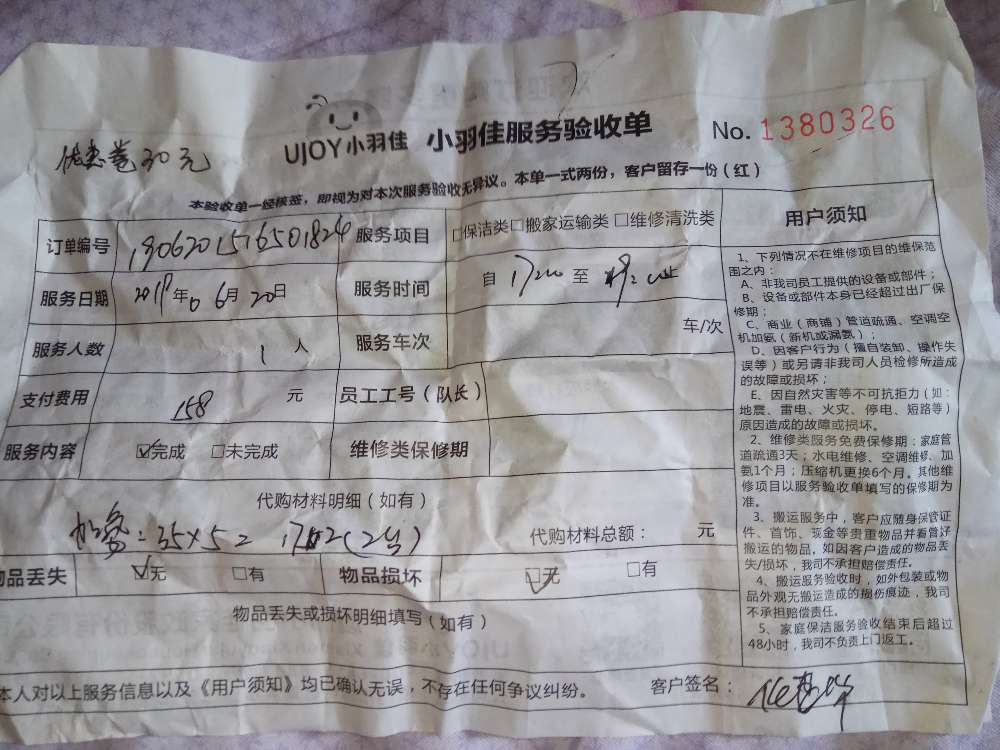 优惠卷30元
UJOY小羽佳 小羽佳服务验收单 No. 1380326
本验收单一经核签，即视为对本次服务验收无异议。本单一式两份，客户留存一份（红）
订单编号 服务项目 □保洁类□搬家运输类□维修清洗类
服务日期 年 6月20日 服务时间 自 至
服务人数 1人 服务车次 车/次
支付费用 158 元 员工工号（队长）
服务内容 ☑完成 □未完成 维修类保修期
代购材料明细（如有）
=35×5= (2台) 代购材料总额： 元
物品丢失 ☑无 □有 物品损坏 ☑无 □有
物品丢失或损坏明细填写（如有）
本人对以上服务信息以及《用户须知》均已确认无误，不存在任何争议纠纷。 客户签名：
用户须知
1、下列情况不在维修项目的维保范
围之内：
A、非我司员工提供的设备或部件；
B、设备或部件本身已经超过出厂保
修期；
C、商业（商铺）管道疏通、空调空
机加氨（新机或漏氨）；
D、因客户行为（擅自装卸、操作失
误等）或另请非我司人员检修所造成
的故障或损坏；
E、因自然灾害等不可抗拒力（如：
地震、雷电、火灾、停电、短路等）
原因造成的故障或损坏。
2、维修类服务免费保修期：家庭管
道疏通3天；水电维修、空调维修、加
氨1个月；压缩机更换6个月。其他维
修项目以服务验收单填写的保修期为
准。
3、搬运服务中，客户应随身保管证
件、首饰、现金等贵重物品并看管好
搬运的物品。如因客户造成的物品丢
失/损坏，我司不承担赔偿责任。
4、搬运服务验收时，如外包装或物
品外观无搬运造成的损伤痕迹，我司
不承担赔偿责任。
5、家庭保洁服务验收结束后超过
48小时，我司不负责上门返工。